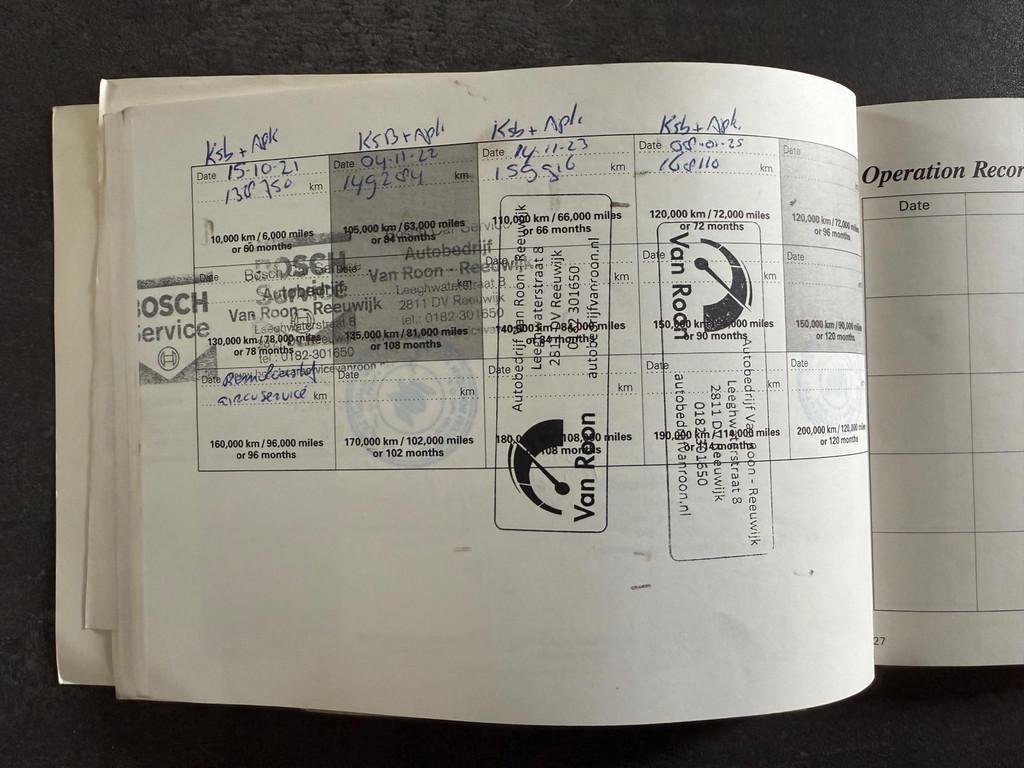 Ksb + Apk
KsB + Apk.
Ksb + Apk.
Ksb + Apk.
Date 15-10-21
138750 km
10,000 km / 6,000 miles
or 60 months
Date 04-11-22
149284 km
105,000 km / 63,000 miles
or 84 months
Date 14-11-23
159316
110,000 km / 66,000 miles
or 66 months
Date 08-01-25
168110
120,000 km / 72,000 miles
or 72 months
Date
120,000 km / 72,000 miles
or 96 months
BOSCH
Service
Date
Bosch
Autobedrijf
Van Roon - Reeuwijk
Leeghwaterstraat 8
tel.: 0182-301650
130,000 km / 78,000 miles
or 78 months
BOSCH
Service
Autobedrijf
Van Roon - Reeuwijk
Leeghwaterstraat 8
2811 DV Reeuwijk
tel.: 0182-301650
135,000 km / 81,000 miles
or 108 months
km
or 84 months
km
150,000
or 90 months
Date
150,000 km / 90,000 miles
or 120 months
Date Remvloeistof
aircoservice km
160,000 km / 96,000 miles
or 96 months
Date
km
170,000 km / 102,000 miles
or 102 months
Date
km
180,000 km / 108,000 miles
or 108 months
Date
km
190,000 km / 114,000 miles
or 114 months
Date
200,000 km / 120,000 miles
or 120 months
Autobedrijf Van Roon - Reeuwijk
Leeghwaterstraat 8
2811 DV Reeuwijk
0182 301650
autobedrijfvanroon.nl
Van Roon
Van Roon
Autobedrijf Van Roon - Reeuwijk
Leeghwaterstraat 8
2811 DV Reeuwijk
0182 301650
autobedrijfvanroon.nl
Operation Recor
Date
27